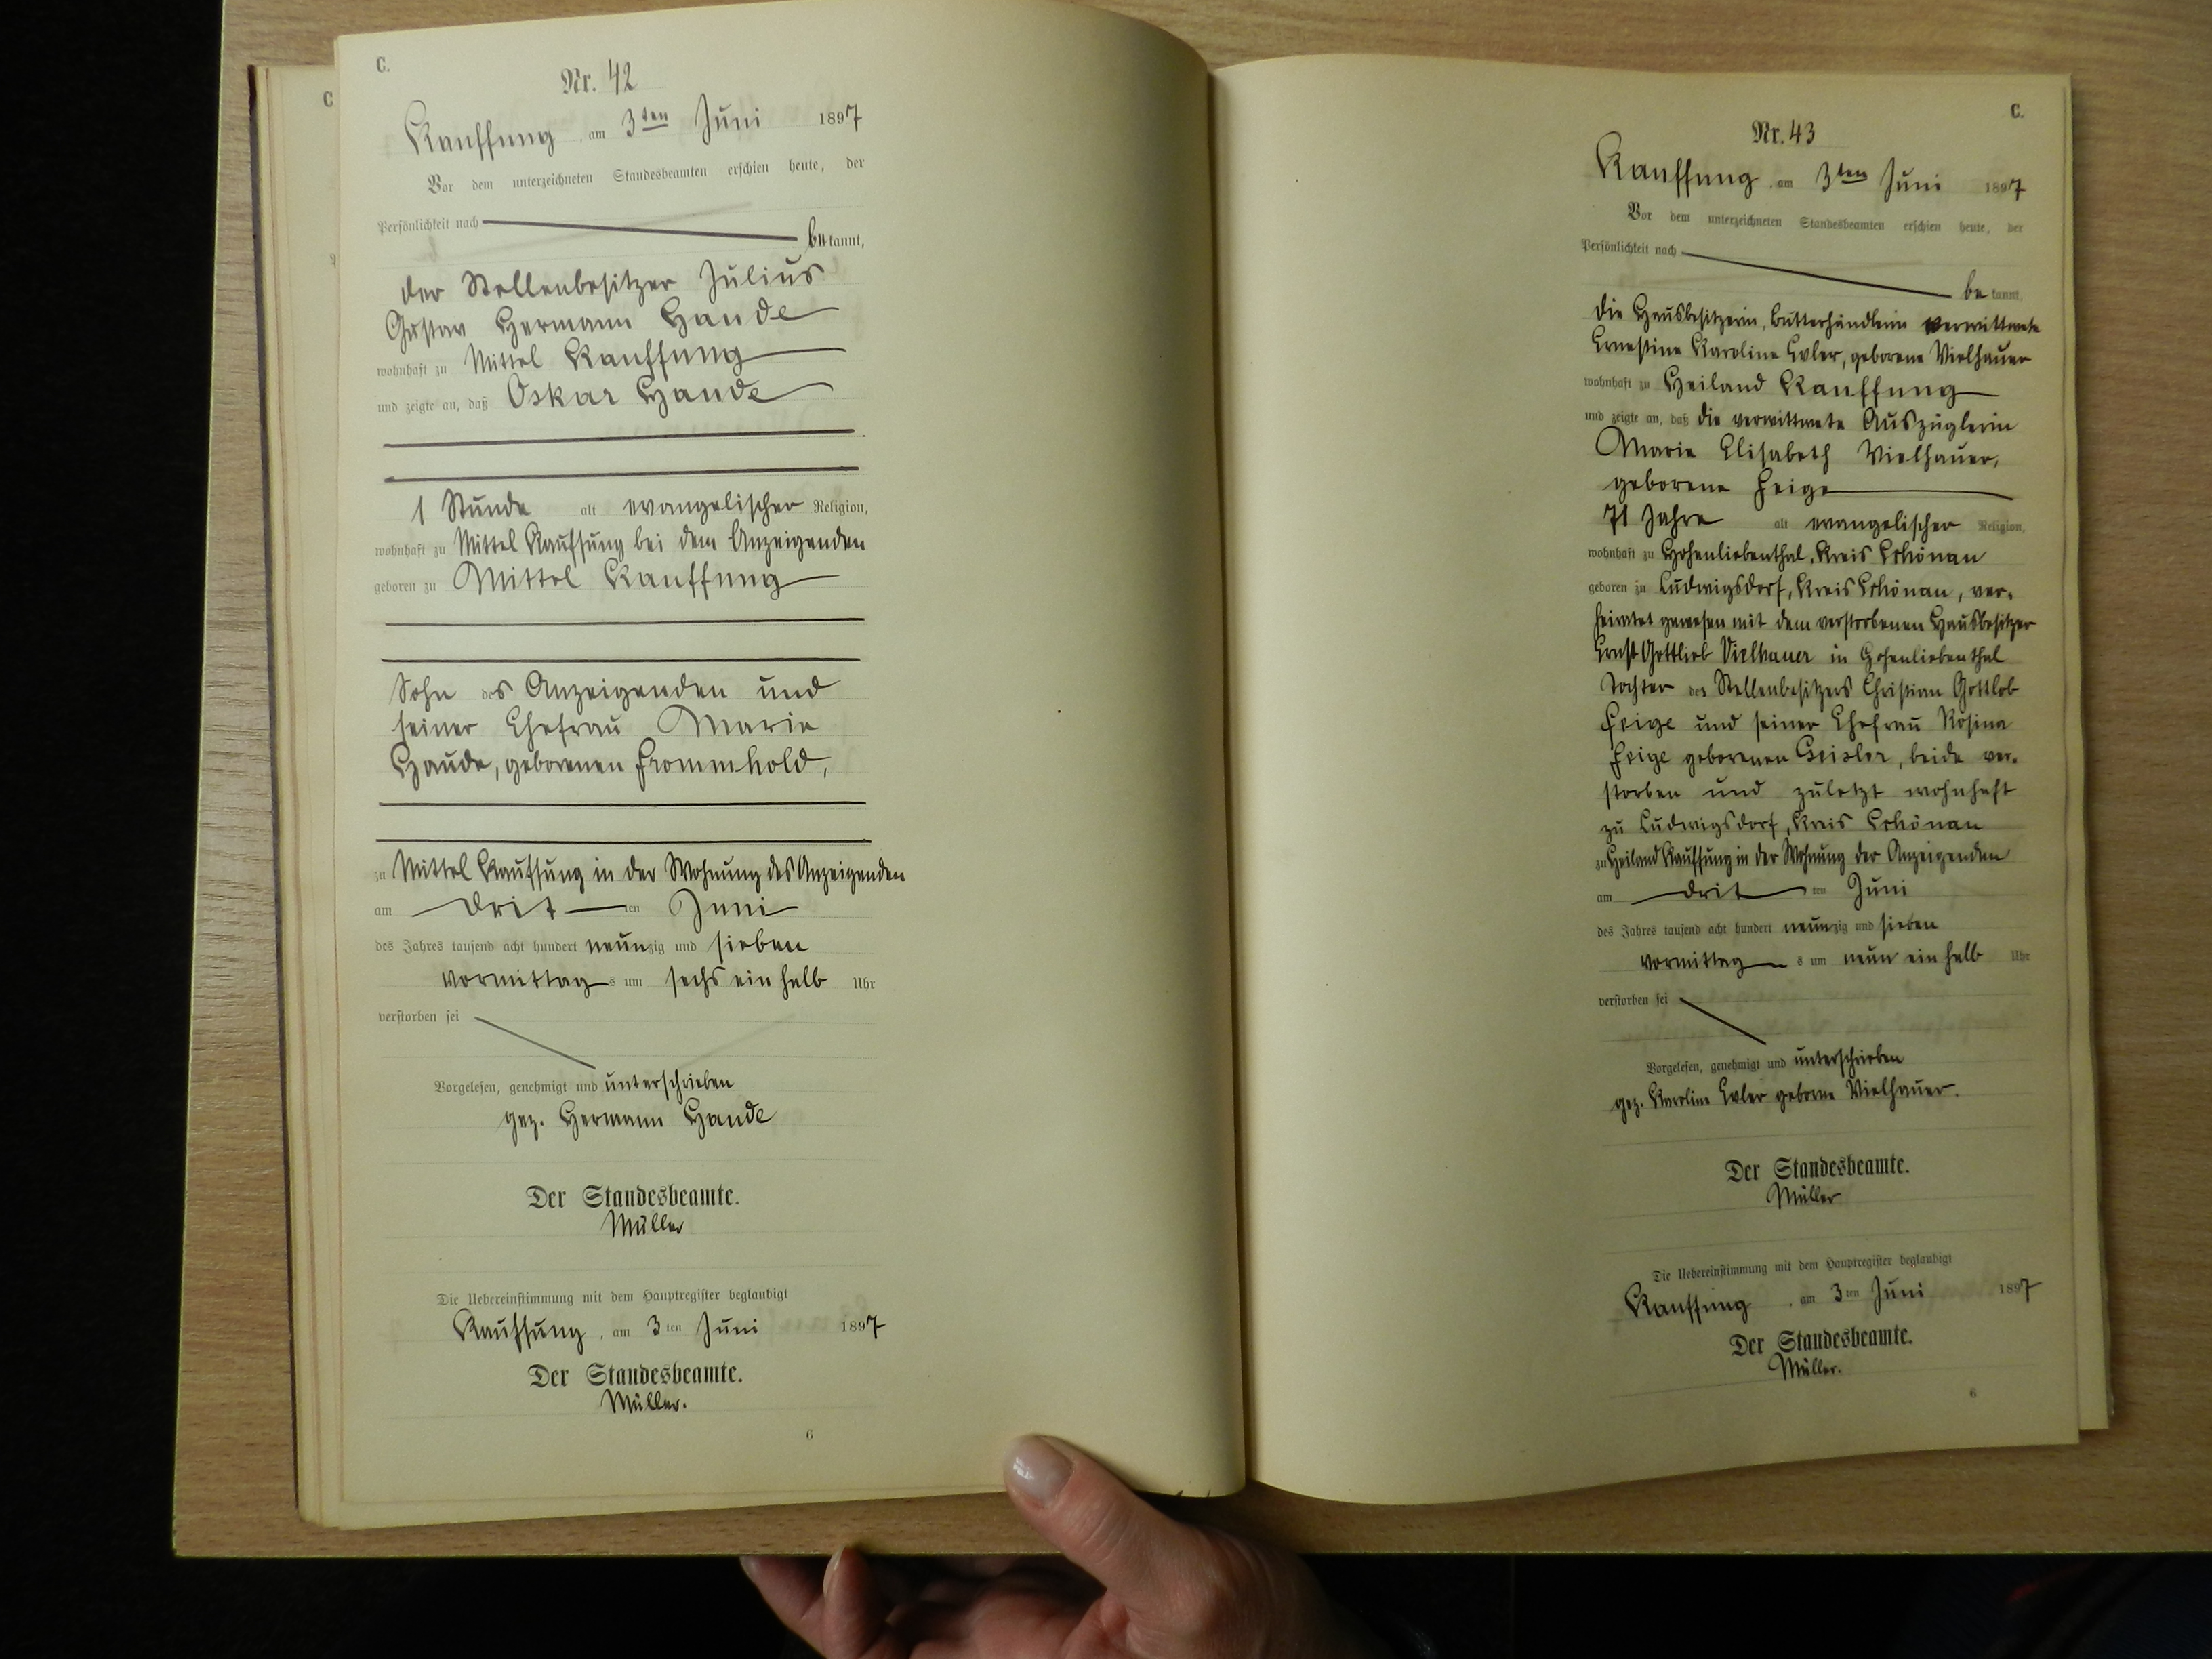 C.
Nr. 42
Kauffung, am 3ten Juni 1897
Vor dem unterzeichneten Standesbeamten erschien heute, der
Persönlichkeit nach
bekannt,
der Stellenbesitzer Julius
Gustav Hermann Hande
wohnhaft zu Mittel Kauffung
und zeigte an, daß Oskar Hande
1 Stunde alt evangelischer Religion,
wohnhaft zu Mittel Kauffung bei dem Anzeigenden
geboren zu Mittel Kauffung
Sohn des Anzeigenden und
seiner Ehefrau Marie
Haude, geborenen Frommhold,
zu Mittel Kauffung in der Wohnung des Anzeigenden
am drit ten Juni
des Jahres tausend acht hundert neunzig und sieben
vormittags um sechs ein halb Uhr
verstorben sei
Vorgelesen, genehmigt und unterschrieben
gez. Hermann Hande
Der Standesbeamte.
Müller
Die Uebereinstimmung mit dem Hauptregister beglaubigt
Kauffung, am 3ten Juni 1897
Der Standesbeamte.
Müller.
6
C
C.
Nr. 43
Kauffung, am 3ten Juni 1897
Vor dem unterzeichneten Standesbeamten erschien heute, der
Persönlichkeit nach
bekannt,
die Hausbesitzerin, Butterhändlerin verwittwete
Ernestine Karoline Evler, geborene Vielhauer
wohnhaft zu Heiland Kauffung
und zeigte an, daß die verwittwete Auszüglerin
Marie Elisabeth Vielhauer,
geborene Feige
71 Jahre alt evangelischer Religion,
wohnhaft zu Hohenliebenthal, Kreis Schönau
geboren zu Ludwigsdorf, Kreis Schönau, ver-
heiratet gewesen mit dem verstorbenen Hausbesitzer
Ernst Gottlieb Vielhauer in Hohenliebenthal
Tochter des Stellenbesitzers Christian Gottlob
Feige und seiner Ehefrau Rosina
Feige geborenen Geisler, beide ver-
storben und zuletzt wohnhaft
zu Ludwigsdorf, Kreis Schönau
zu Heiland Kauffung in der Wohnung der Anzeigenden
am drit ten Juni
des Jahres tausend acht hundert neunzig und sieben
vormittags um neun ein halb Uhr
verstorben sei
Vorgelesen, genehmigt und unterschrieben
gez. Karoline Evler geborne Vielhauer.
Der Standesbeamte.
Müller
Die Uebereinstimmung mit dem Hauptregister beglaubigt
Kauffung, am 3ten Juni 1897
Der Standesbeamte.
Müller.
6